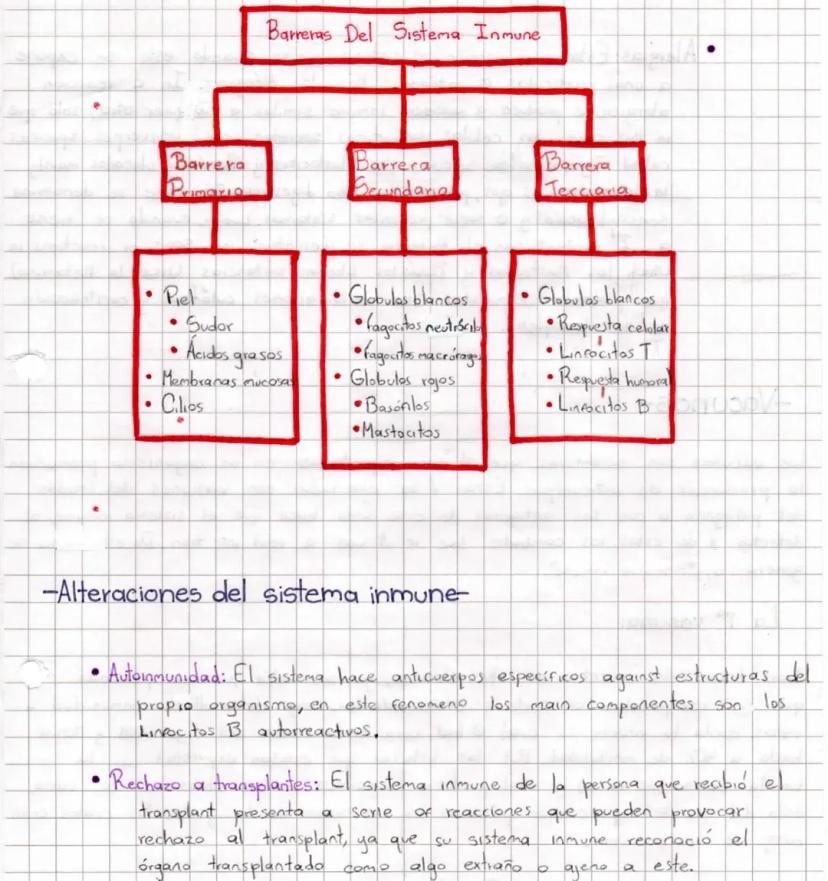 Barreras Del Sistema Inmune
Barrera
Primaria
Barrera
Secundaria
Barrera
Terciaria
• Piel
• Sudor
• Ácidos grasos
• Membranas mucosas
• Cilios
• Globulos blancos
• fagocitos neutrófilo
• fagocitos macrófagos
• Globulos rojos
• Basófilos
• Mastocitos
• Globulos blancos
• Respuesta celular
• Linfocitos T
• Respuesta humoral
• Linfocitos B
-Alteraciones del sistema inmune-
• Autoinmunidad: El sistema hace anticuerpos específicos against estructuras del
propio organismo, en este fenomeno los main componentes son los
Linfocitos B autorreactivos.
• Rechazo a transplantes: El sistema inmune de la persona que recibió el
transplant presenta a serie of reacciones que pueden provocar
rechazo al transplant, ya que su sistema inmune reconoció el
órgano transplantado como algo extraño o ajeno a este.